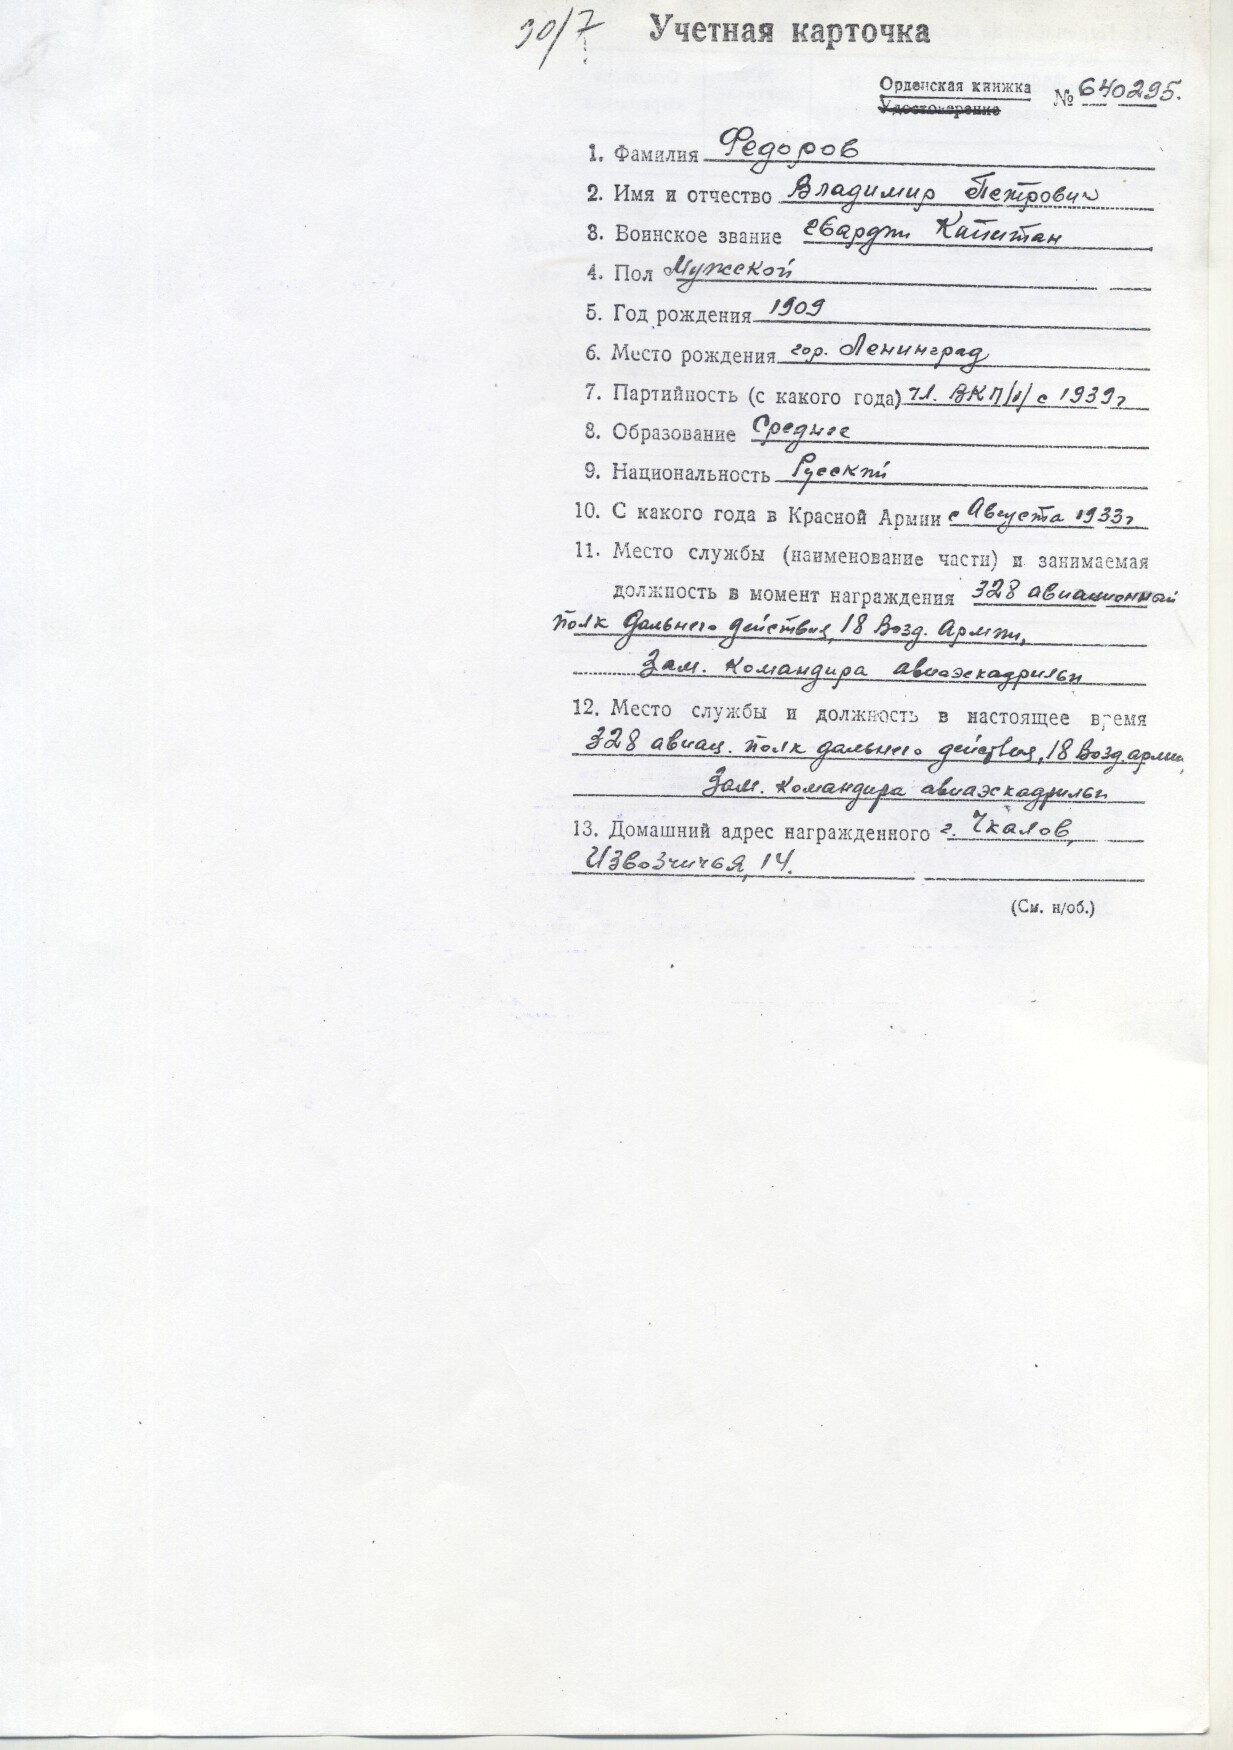 30/7
Учетная карточка
Орденская книжка
Удостоверение
№ 640295.
1. Фамилия Федоров
2. Имя и отчество Владимир Петрович
3. Воинское звание гвардии Капитан
4. Пол Мужской
5. Год рождения 1909
6. Место рождения гор. Ленинград
7. Партийность (с какого года) чл. ВКП/б/ с 1939г
8. Образование Среднее
9. Национальность Русский
10. С какого года в Красной Армии с Августа 1933г
11. Место службы (наименование части) и занимаемая
должность в момент награждения 328 авиационный
полк дальнего действия, 18 Возд. Армии,
Зам. командира авиаэскадрильи
12. Место службы и должность в настоящее время
328 авиац. полк дальнего действия, 18 Возд. армии,
Зам. командира авиаэскадрильи
13. Домашний адрес награжденного г. Чкалов,
Извозчичья, 14.
(См. н/об.)